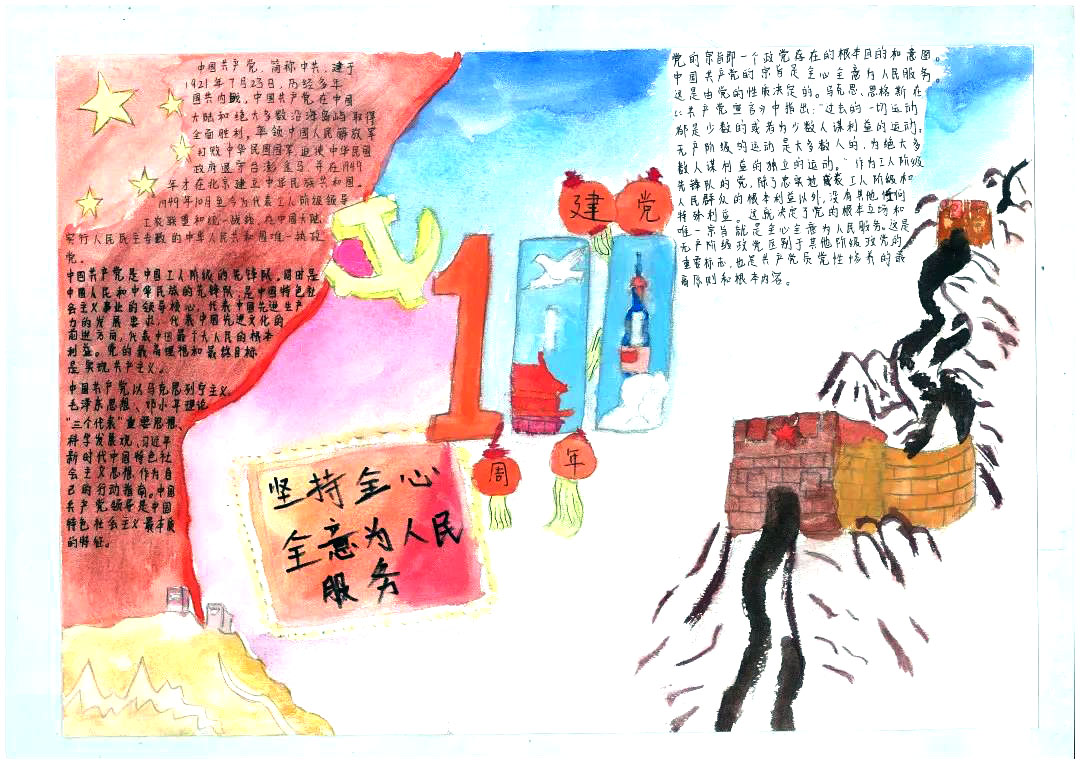 中国共产党，简称中共，建于
1921年7月23日，历经多年
国共内戰，中国共产党在中国
大陆和绝大多数沿海岛屿取得
全面胜利，率领中国人民解放军
打败中华民国国军，迫使中华民国
政府退守台澎金马，并在1949
年才在北京建立中华民族共和国。
1949年10月至今为代表工人阶级领导
工农联盟和统一战线，在中国大陆
实行人民民主专政的中华人民共和国唯一执政
党。
中国共产党是中国工人阶级的先锋队，同时是
中国人民和中华民族的先锋队，是中国特色社
会主义事业的领导核心，代表中国先进生产
力的发展要求，代表中国先进文化的
前进方向，代表中国最广大人民的根本
利益。党的最高理想和最终目标
是实现共产主义。
中国共产党以马克思列宁主义，
毛泽东思想、邓小平理论
“三个代表”重要思想、
科学发展观、习近平
新时代中国特色社
会主义思想作为自
己的行动指南。中国
共产党领导是中国
特色社会主义最本质
的特征。
建党
100
周年
坚持全心
全意为人民
服务
党的宗旨即一个政党存在的根本目的和意图。
中国共产党的宗旨是全心全意为人民服务。
这是由党的性质决定的。马克思、恩格斯在
《共产党宣言》中指出：“过去的一切运动
都是少数的或者为少数人谋利益的运动。
无产阶级的运动是大多数人的，为绝大多
数人谋利益的独立的运动。”作为工人阶级
先锋队的党，除了忠实地代表工人阶级和
人民群众的根本利益以外，没有其他任何
特殊利益。这就决定了党的根本立场和
唯一宗旨就是全心全意为人民服务。这是
无产阶级政党区别于其他阶级政党的
重要标志，也是共产党员党性培养的最
高原则和根本内容。